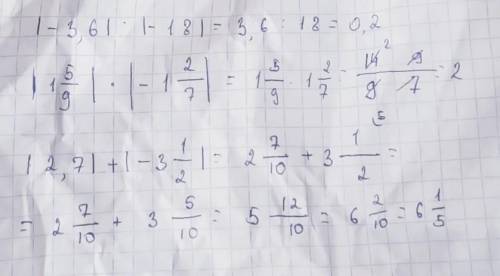 |-3,6| : |-18| = 3,6 : 18 = 0,2
|1 5/9| · |-1 2/7| = 1 5/9 · 1 2/7 = 14² 9 / 9 7 = 2
|2,7| + |-3 1/2| = 2 7/10 + 3 1/2 (5 =
= 2 7/10 + 3 5/10 = 5 12/10 = 6 2/10 = 6 1/5